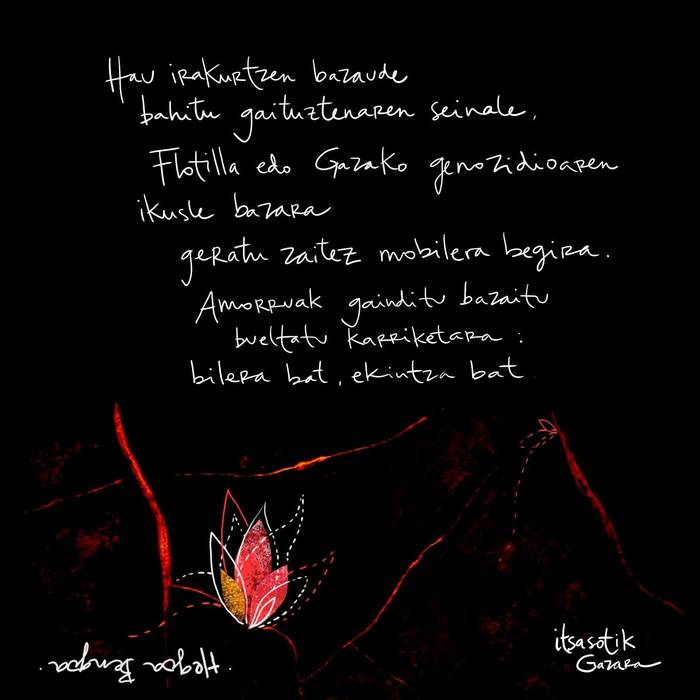 Hau irakurtzen bazaude
bahitu gaituztenaren seinale,
Flotilla edo Gazako genozidioaren
ikusle bazara
geratu zaitez mobilera begira.
Amorruak gainditu bazaitu
bueltatu karriketara :
bilera bat, ekintza bat
itsasotik
Gazara